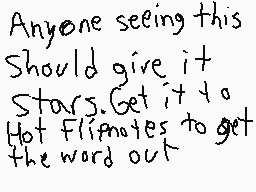 Anyone seeing this
Should give it
stars. Get it to
Hot Flipnotes to get
the word out